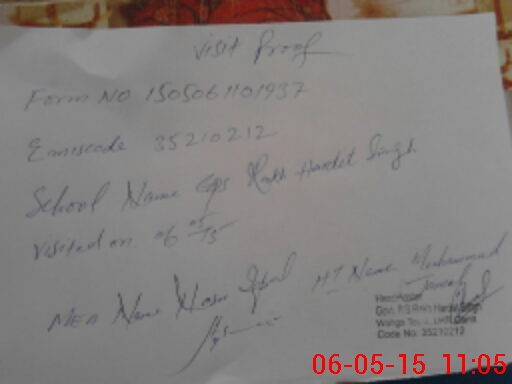 Visit Proof
Form NO 1505061101937
Emiscode 35210212
School Name Gps Rakh Hardit Singh
Visited on 06 05/15
MEA Name Nasir Iqbal
HT Name Muhammad
Headmaster
Govt. P/S Rakh Hardit Singh
Wahga Town, LHR Cantt
Code No. 35210212
06-05-15 11:05